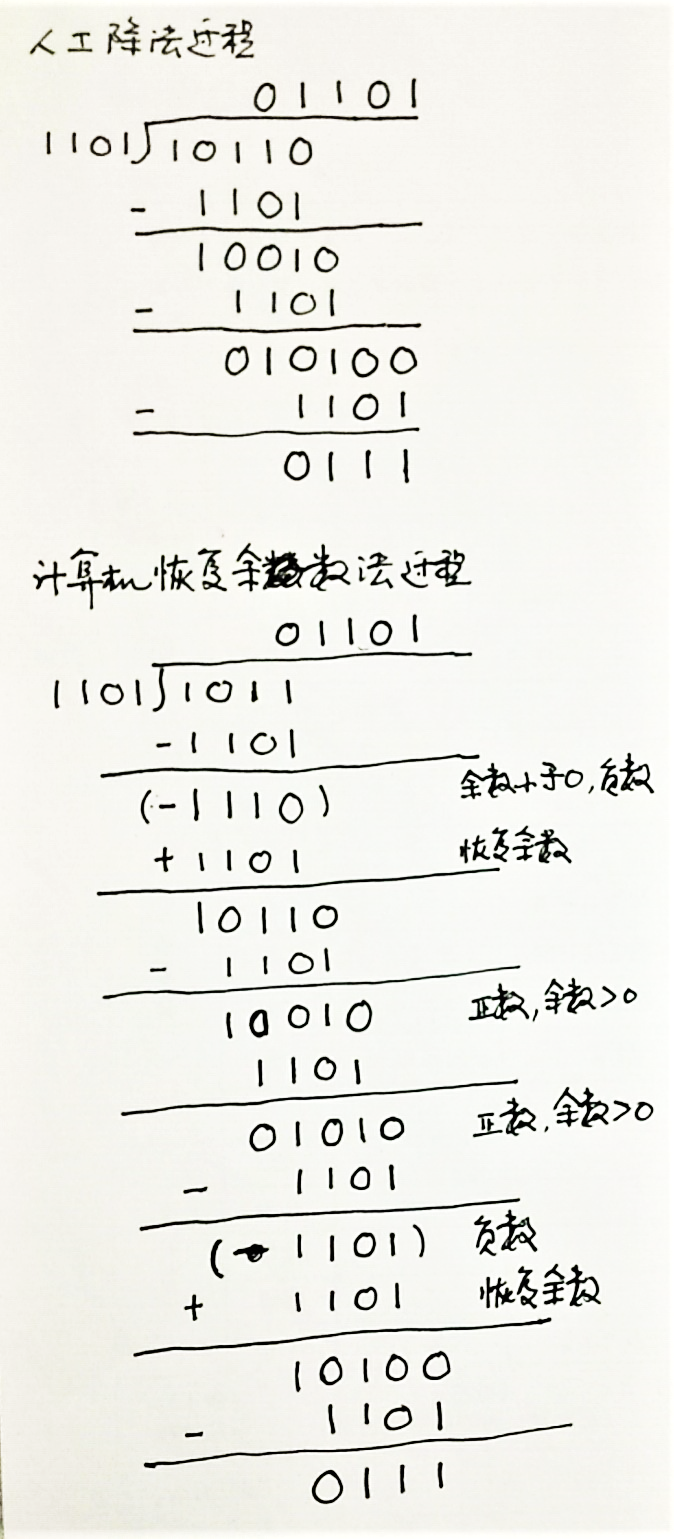 人工除法过程
01101
1101)10110
- 1101
10010
- 1101
010100
- 1101
0111
计算机恢复余数法过程
01101
1101)1011
-1101
(-1110) 余数小于0,负数
+1101 恢复余数
10110
- 1101
10010 正数,余数>0
1101
01010 正数,余数>0
- 1101
(-1101) 负数
+ 1101 恢复余数
10100
- 1101
0111